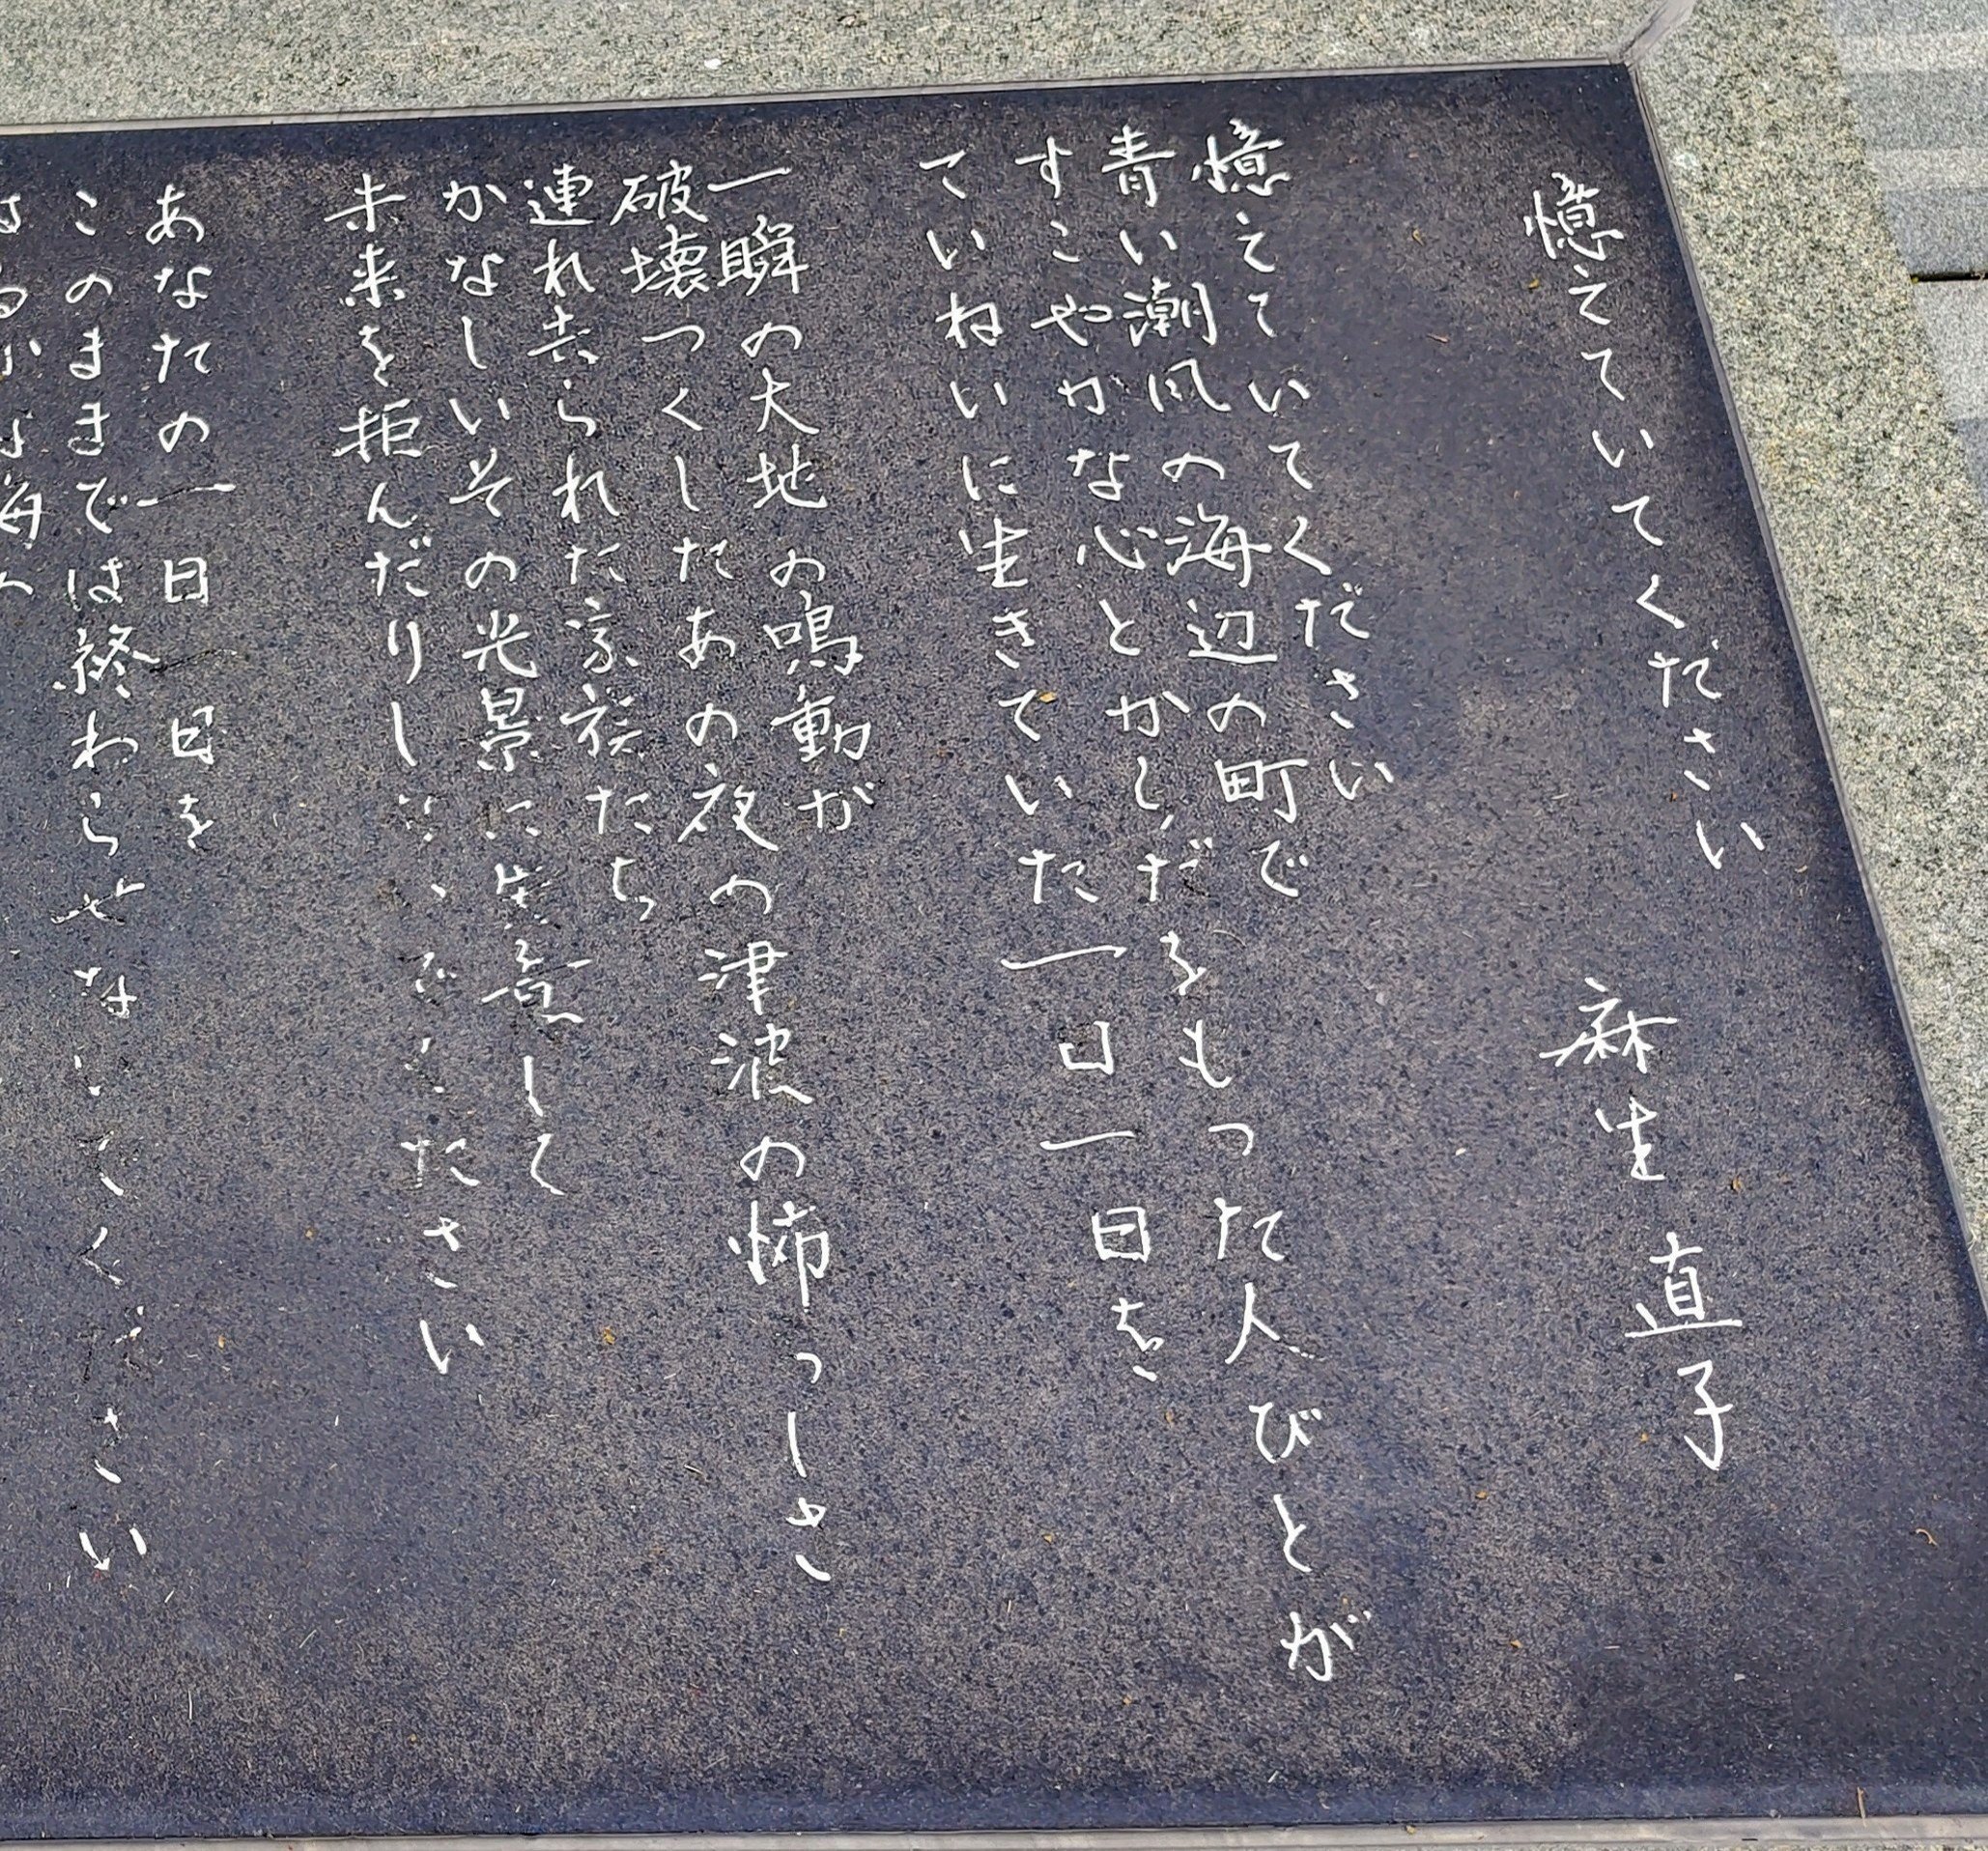 憶えていてください　麻生 直子
憶えていてください
青い潮風の海辺の町で
すこやかな心とからだをもった人びとが
ていねいに生きていた一日一日を
一瞬の大地の鳴動が
破壊つくしたあの夜の津波の怖っしさ
連れ去られた家族たち
かなしいその光景に失意して
未来を拒んだりしないでください
あなたの一日一日を
このままでは終わらせないでください